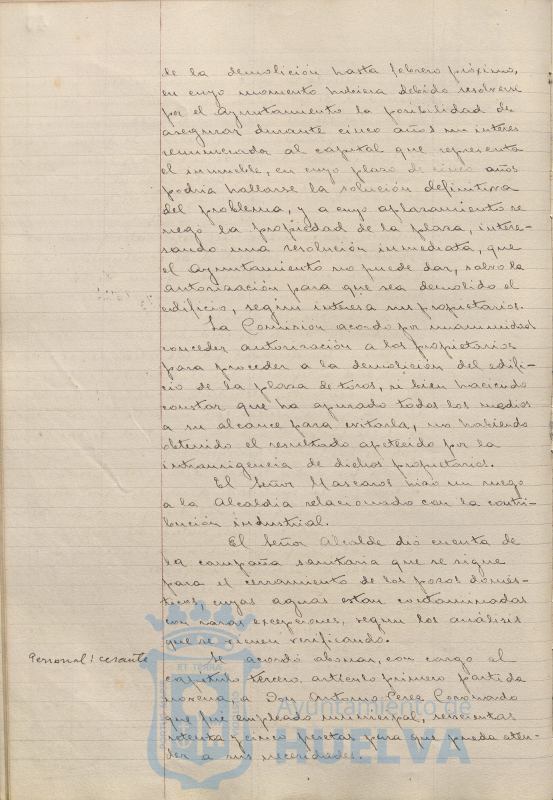 de la demolición hasta febrero próximo,
en cuyo momento hubiera debido resolverse
por el Ayuntamiento la posibilidad de
asegurar durante cinco años un interés
remunerador al capital que representa
el inmueble, en cuyo plazo de cinco años
podría hallarse la solución definitiva
del problema, y a cuyo aplazamiento se
negó la propiedad de la plaza, intere-
sando una resolución inmediata, que
el Ayuntamiento no puede dar, salvo la
autorización para que sea demolido el
edificio, según interesa sus propietarios.
La Comisión acordó por unanimidad
conceder autorización a los propietarios
para proceder a la demolición del edifi-
cio de la plaza de toros, si bien haciendo
constar que ha apurado todos los medios
a su alcance para evitarla, no habiendo
obtenido el resultado apetecido por la
intransigencia de dichos propietarios.
El Señor Mascaros hizo un ruego
a la Alcaldía relacionado con la contri-
bución industrial.
El Señor Alcalde dió cuenta de
la campaña sanitaria que se sigue
para el cerramiento de los pozos domés-
ticos, cuyas aguas estan contaminadas
con raras excepciones, segun los análisis
que se vienen verificando.
Personal: cesante
Se acordó abonar, con cargo al
capitulo tercero, articulo primero partida
novena, a Don Antonio Cerea Coronado
que fué empleado municipal, seiscientas
setenta y cinco pesetas para que pueda aten-
der a sus necesidades.
Ayuntamiento de
HUELVA